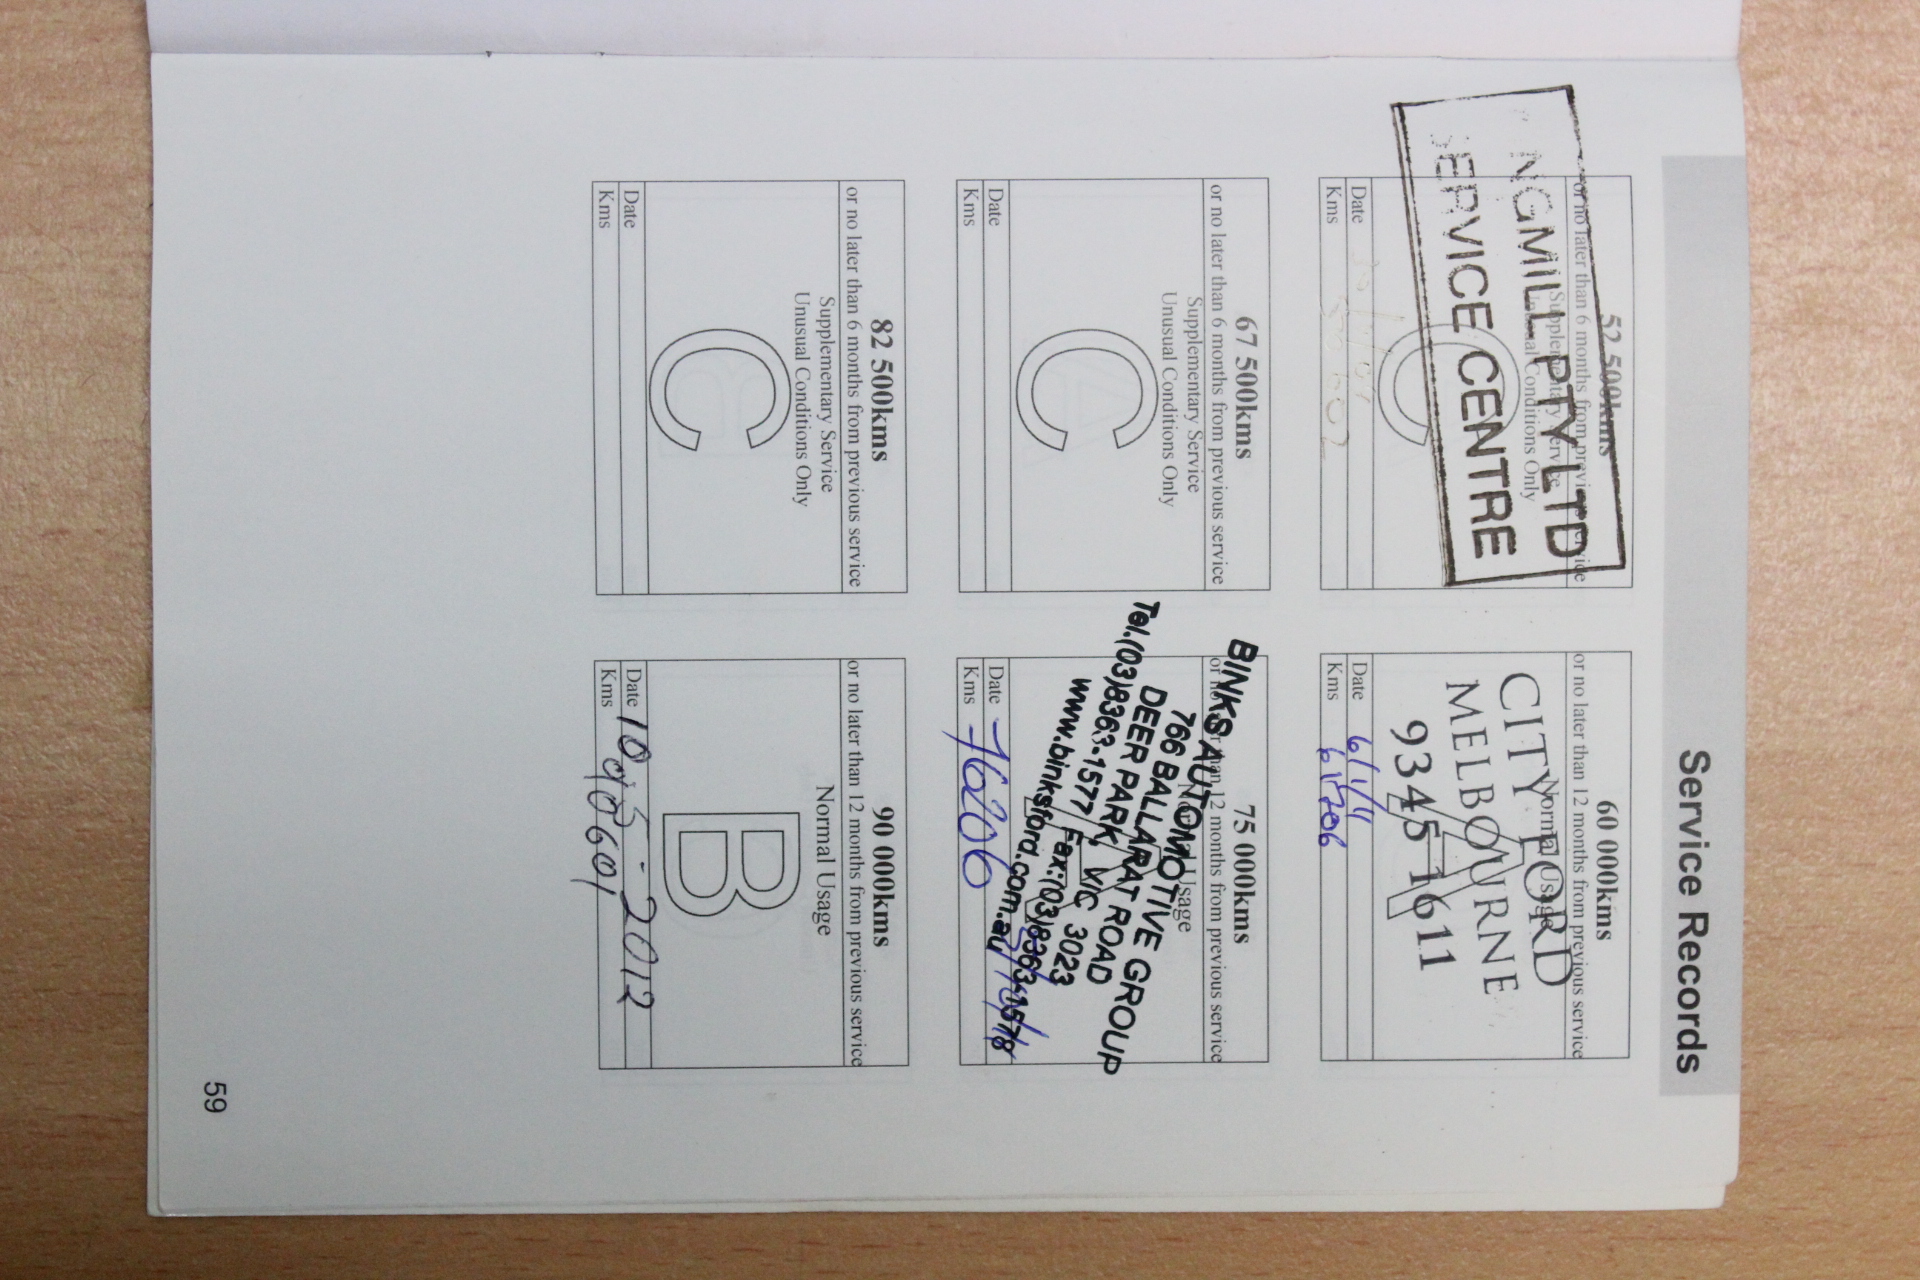 Service Records
52 500kms
or no later than 6 months from previous service
Supplementary Service
Unusual Conditions Only
C
NGMILL PTY LTD
SERVICE CENTRE
Date
Kms
60 000kms
or no later than 12 months from previous service
Normal Usage
A
CITY FORD
MELBOURNE
9345 1611
Date 6/1/11
Kms 61706
67 500kms
or no later than 6 months from previous service
Supplementary Service
Unusual Conditions Only
C
Date
Kms
75 000kms
or no later than 12 months from previous service
Normal Usage
A
BINKS AUTOMOTIVE GROUP
766 BALLARAT ROAD
DEER PARK, VIC 3023
Tel.(03)8363-1577 Fax:(03)8363-1578
www.binksford.com.au
Date
Kms 76206
82 500kms
or no later than 6 months from previous service
Supplementary Service
Unusual Conditions Only
C
Date
Kms
90 000kms
or no later than 12 months from previous service
Normal Usage
B
Date 10-5-2012
Kms 90601
59